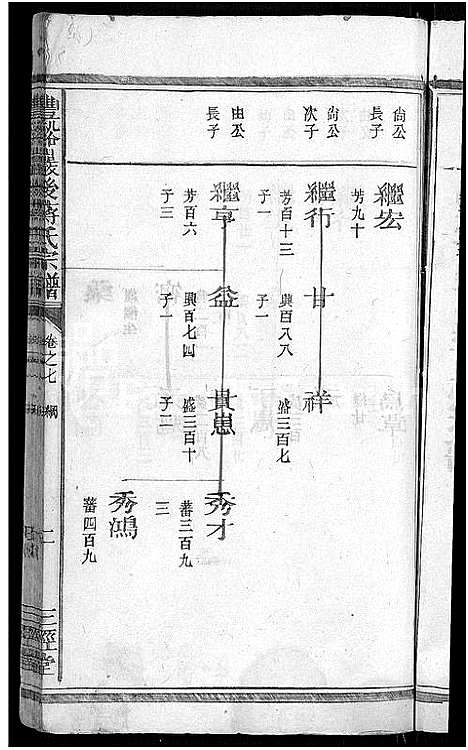 尙公
長子
繼宏
芳九十
尙公
次子
繼行
芳百十三
子一
甘
興百八八
子一
祥
盛三百七
由公
長子
繼亨
芳百六
子三
益
興百七四
子一
貴崽
盛三百十
子二
秀才
蕃三百九
三
秀鴻
蕃四百九
豐谿巖後蔣氏宗譜
卷之七
二
三徑堂